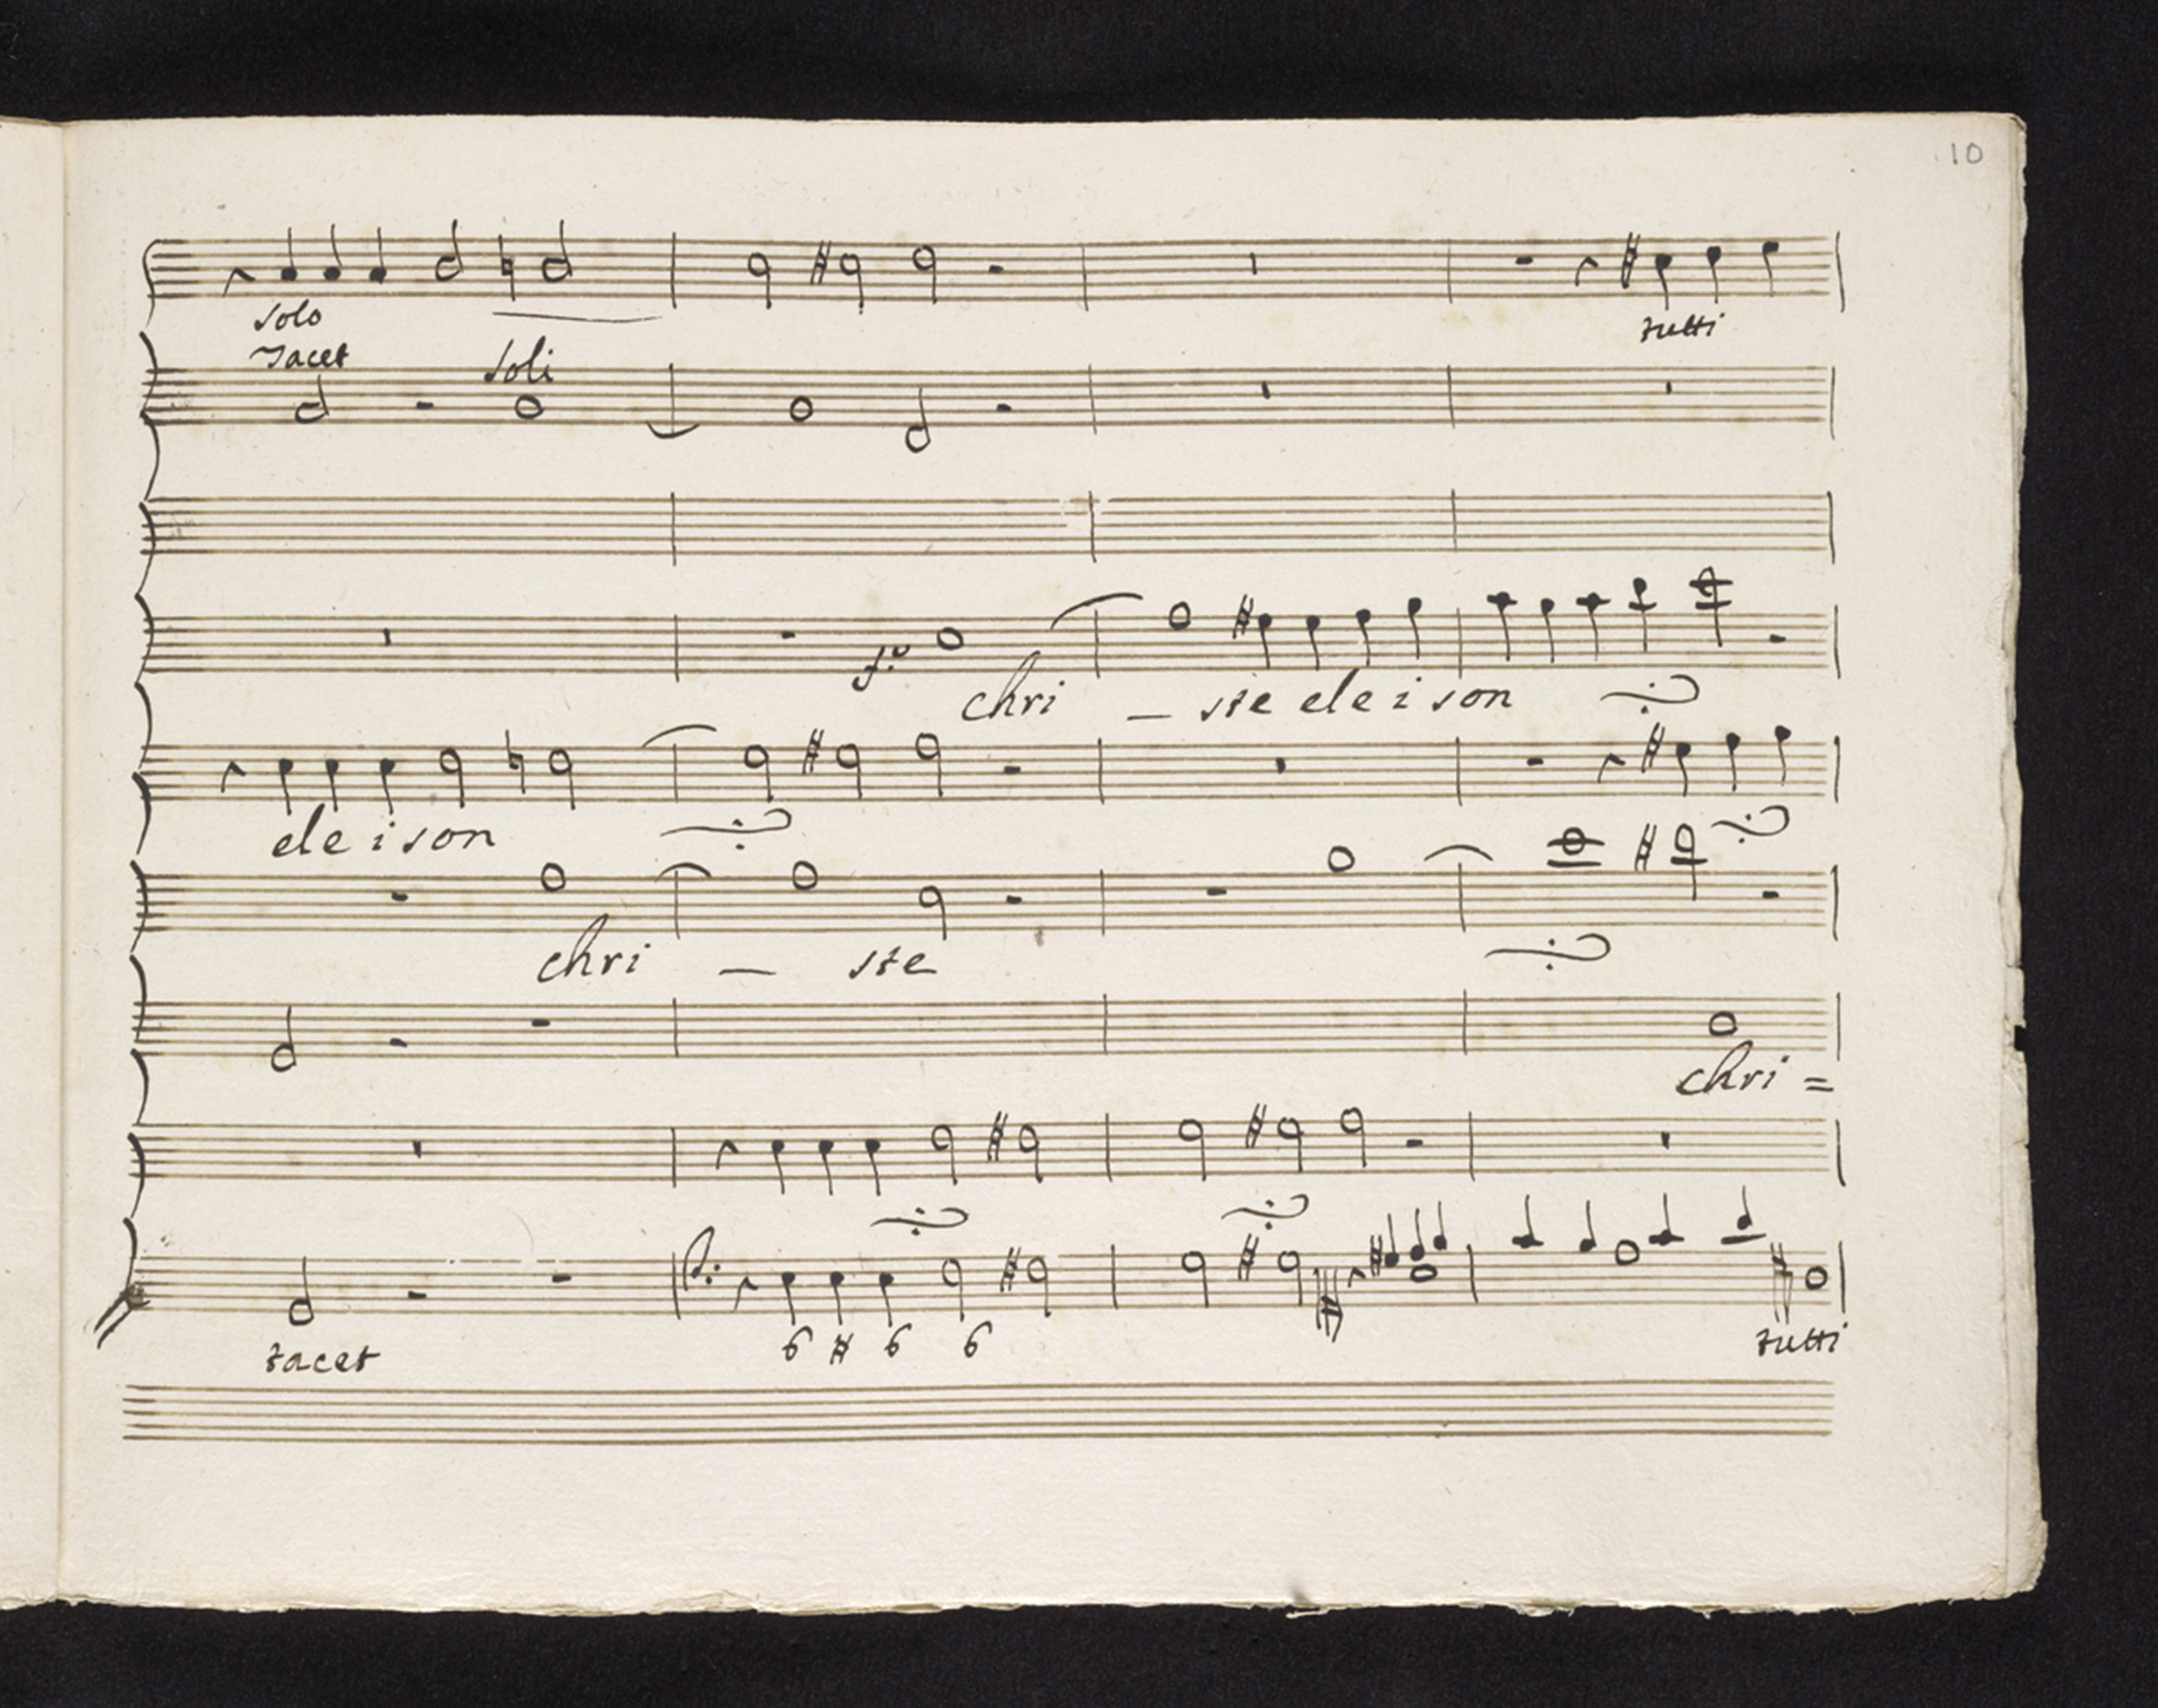 10
solo
tutti
Tacet soli
f.o
chri _ ste ele i son
ele i son
chri _ ste
chri =
6 # 6 6
tacet
tutti